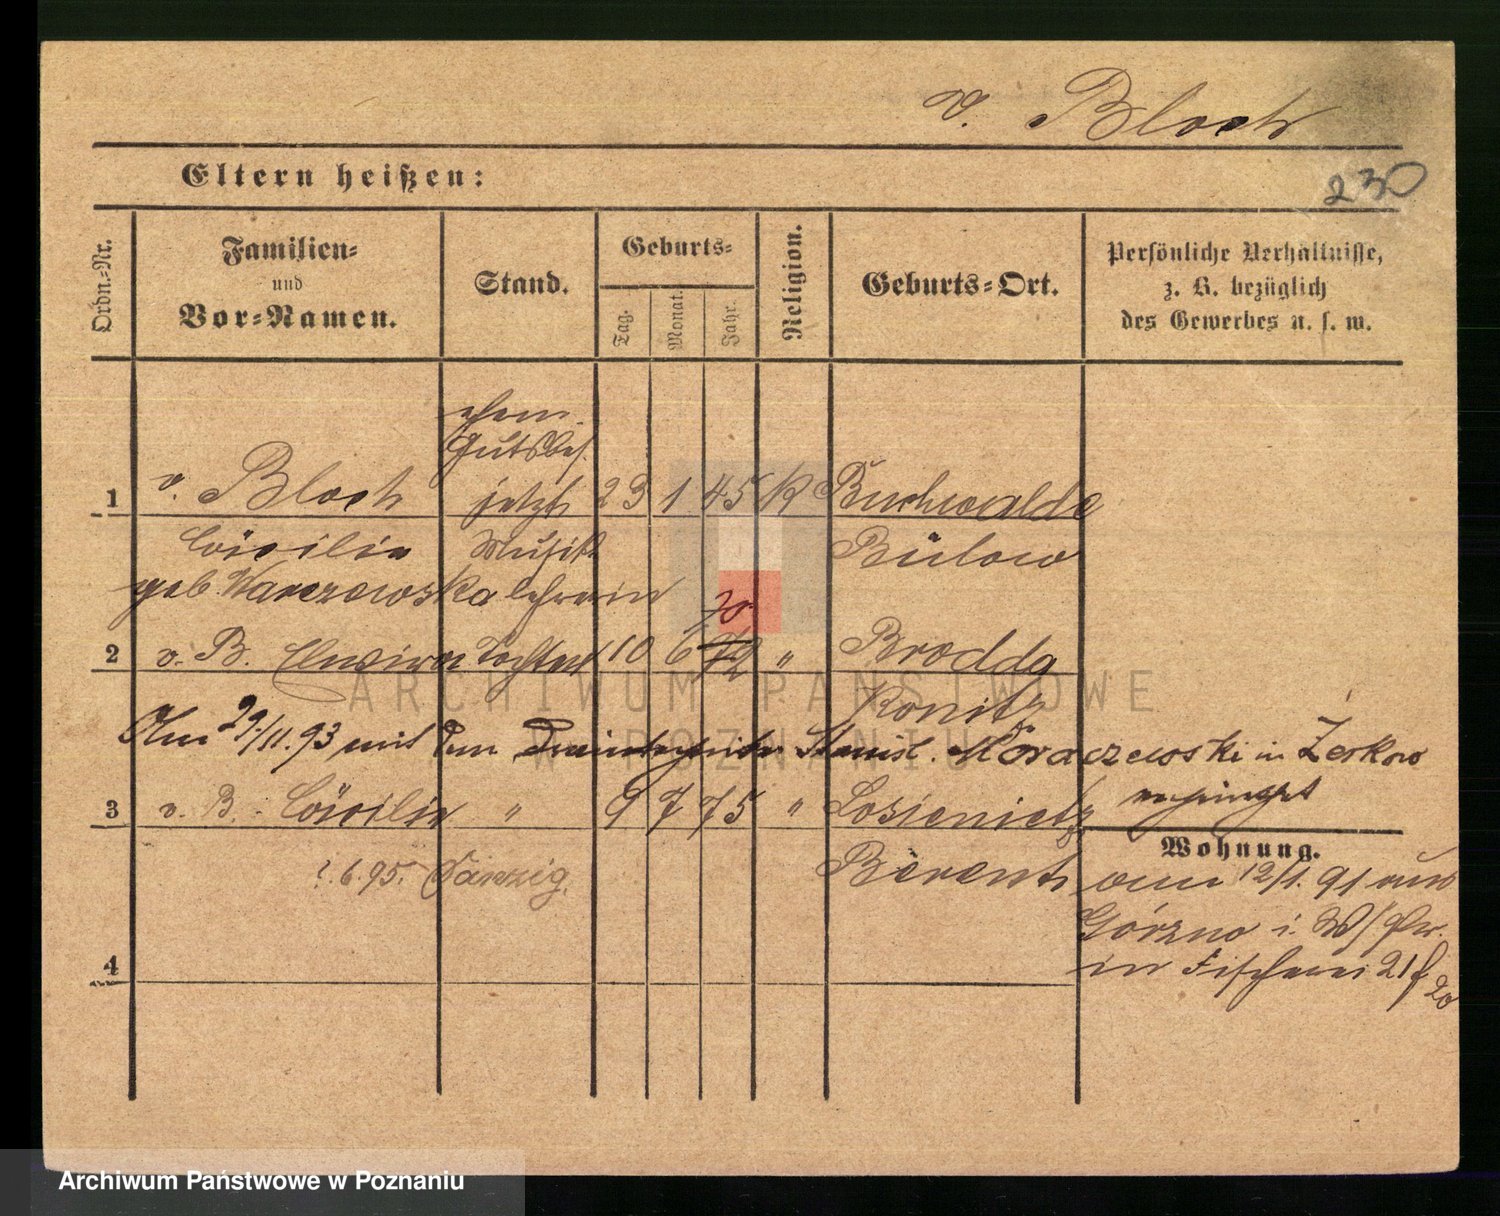 v. Bloch
230
Eltern heißen:
Ordn.-Nr.
Familien-
und
Vor-Namen.
Stand.
Geburts-
Tag.
Monat.
Jahr.
Religion.
Geburts-Ort.
Persönliche Verhältnisse,
z. B. bezüglich
des Gewerbes u. s. w.
ehem.
Gutsbes.
1 v. Bloch jetzt 23 1 45 K Buchwalde
Cäcilie Musik Bülow
geb. Warczewska lehrerin
70
2 v. B. Elwira Tochter 10 6 72 " Brodda
Konitz
Am 29/11.93 mit dem Stanisl. Moraczewski in Zerkow
3 v. B. Cäcilie " 9 7 75 " Losienietz
Wohnung.
2.6.95. Danzig. Berent
am 12/1. 91 aus
Górzno i. W/Pr.
in Fischerei 21 f
20
4
ARCHIWUM PAŃSTWOWE
W POZNANIU
Archiwum Państwowe w Poznaniu